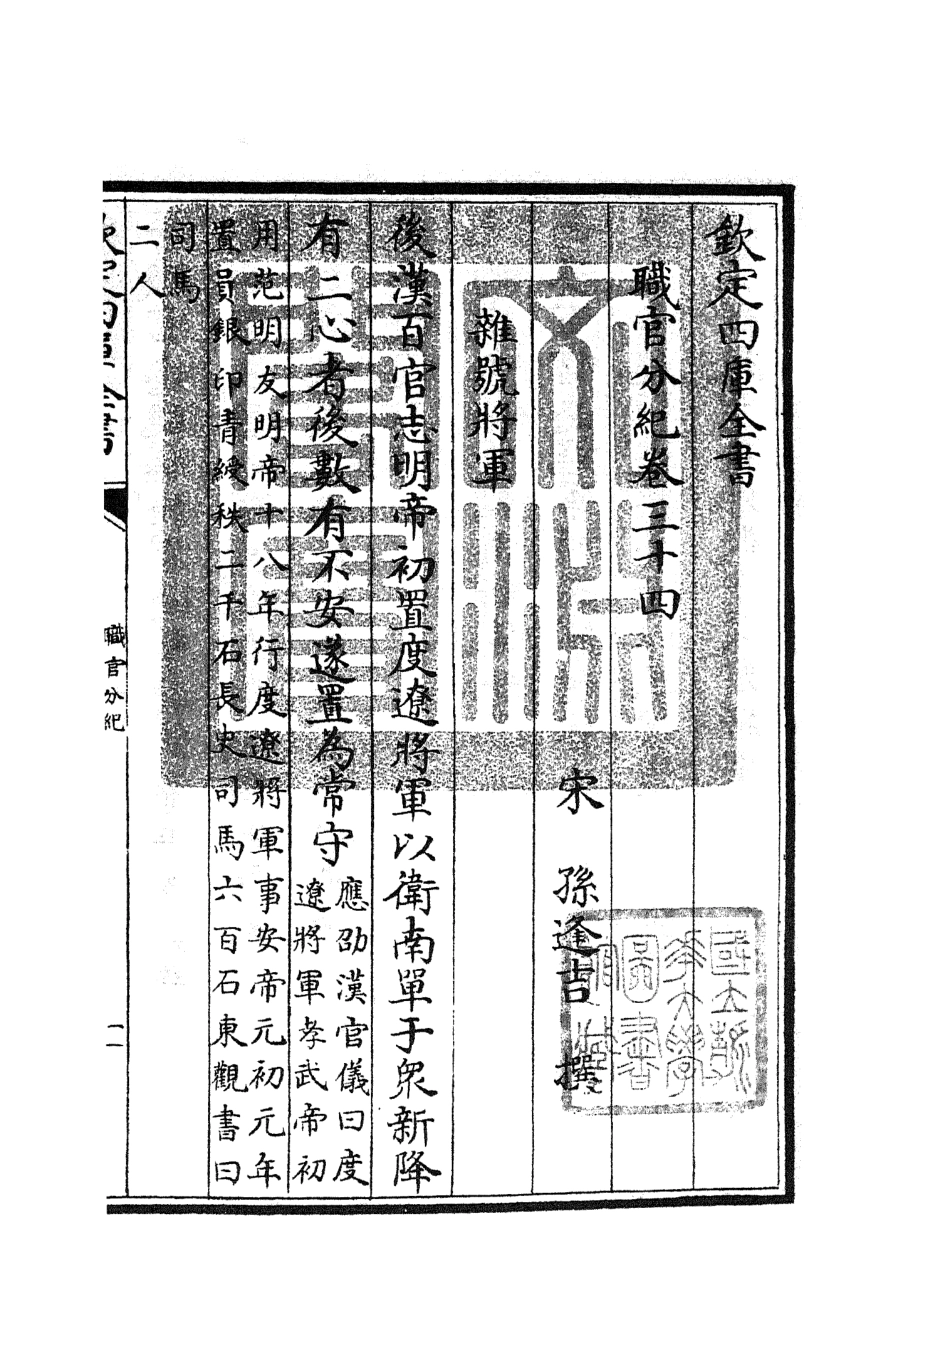 欽定四庫全書
職官分紀卷三十四
宋 孫逢吉 撰
雜號將軍
後漢百官志明帝初置度遼將軍以衛南單于衆新降
有二心者後數有不安遂置為常守
應劭漢官儀曰度
遼將軍孝武帝初
用范明友明帝十八年行度遼將軍事安帝元初元年
置員銀印青綬秩二千石長史司馬六百石東觀書曰
司馬
二人
欽定四庫全書
職官分紀
一
國立清華大學圖書館藏